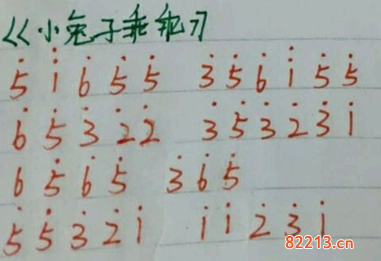 《小兔子乖乖》
5̇ i̇ 6̇ 5̇ 5̇  3̇ 5̇ 6̇ i̇ 5̇ 5̇
6̇ 5̇ 3̇ 2̇ 2̇  3̇ 5̇ 3̇ 2̇ 3̇ 1̇
6̇ 5̇ 6̇ 5̇  3̇ 6̇ 5̇
5̇ 5̇ 3̇ 2̇ 1̇  1̇ 1̇ 2̇ 3̇ 1̇
82213.cn